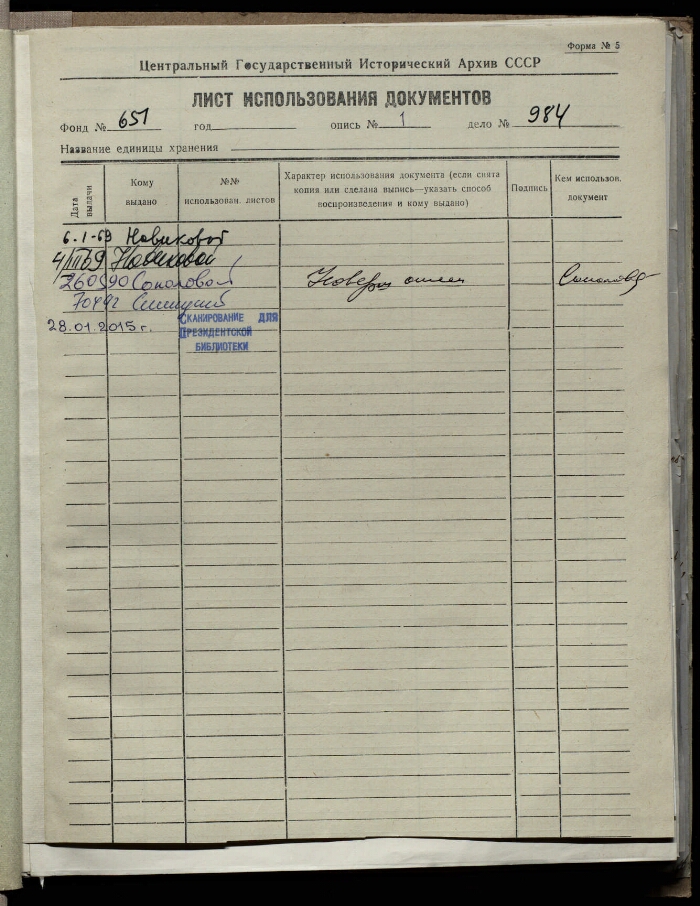 Форма № 5
Центральный Государственный Исторический Архив СССР
ЛИСТ ИСПОЛЬЗОВАНИЯ ДОКУМЕНТОВ
Фонд № 651 год опись № 1 дело № 984
Название единицы хранения
Дата выдачи
Кому выдано
№№ использован. листов
Характер использования документа (если снята
копия или сделана выпись—указать способ
воспроизведения и кому выдано)
Подпись
Кем использов.
документ
6.1-69 Новиковой
4/III 69 Новиковой
260590 Соколовой
28.01.2015 г.
СКАНИРОВАНИЕ ДЛЯ
ПРЕЗИДЕНТСКОЙ
БИБЛИОТЕКИ